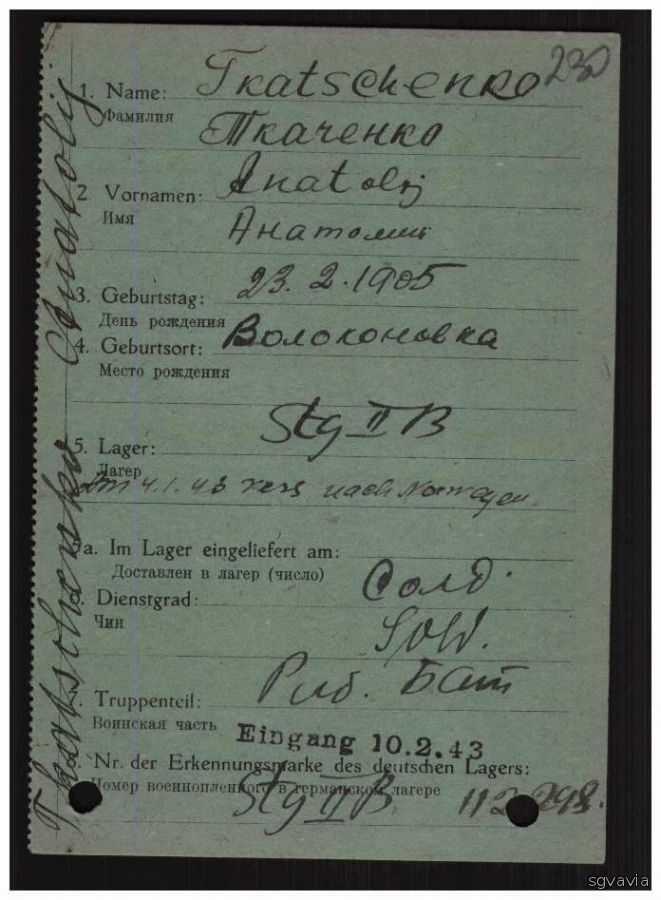 230
1. Name: Tkatschenko
Фамилия Ткаченко
2 Vornamen: Anatolij
Имя Анатолий
3. Geburtstag: 23. 2. 1905
День рождения
4. Geburtsort: Волоконовка
Место рождения
Stg II B
5. Lager:
Лагер
Am 4.1.43 vers nach Norwegen.
5a. Im Lager eingeliefert am:
Доставлен в лагер (число)
Солд.
6. Dienstgrad:
Чин
Sold.
Бат
Truppenteil:
Воинская часть
Eingang 10.2.43
Nr. der Erkennungsmarke des deutschen Lagers:
Номер военнопленного в германском лагере
Stg II B
Tkatschenko Anatolij
sgvavia